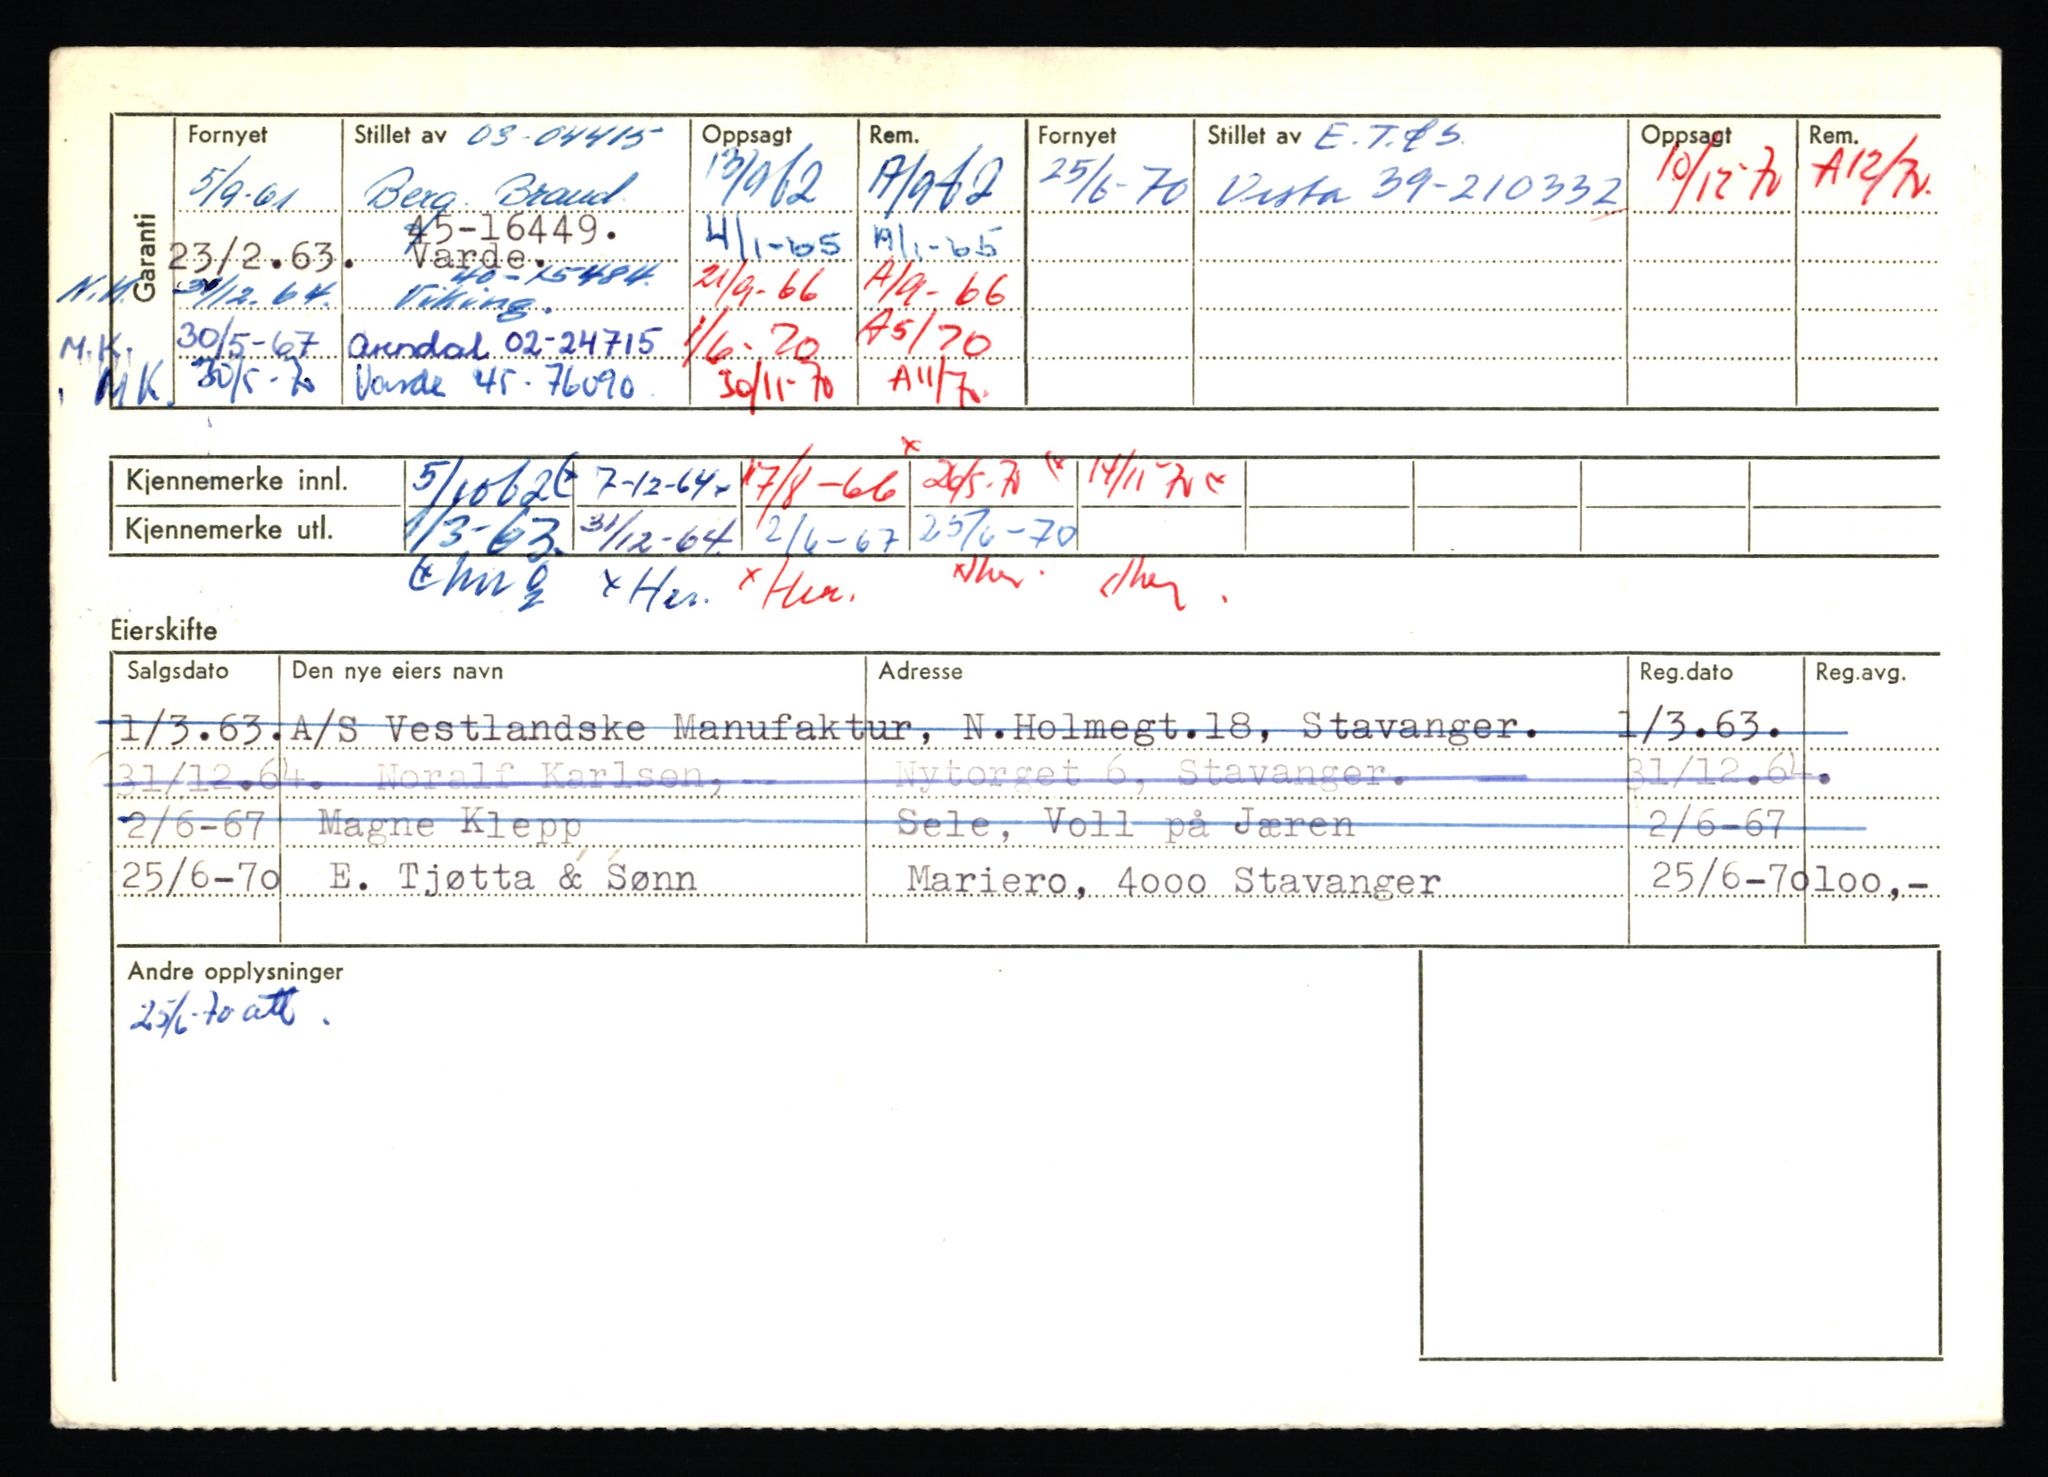 Garanti
Fornyet Stillet av 03-04415 Oppsagt Rem. Fornyet Stillet av E.T.&S. Oppsagt Rem.
5/9-61 Berg. Brand 13/9 62 A/9 62 25/6-70 Vesta 39-210332 10/12-70 A12/70.
45-16449.
23/2.63. Varde. 4/1-65 A/1-65
40-15484.
N.K. 31/12.64. Viking. 21/9-66 A/9-66
M.K. 30/5-67 Arendal 02-24715 1/6-70 A5/70
M.K. 30/5-70 Varde 45-76090 30/11-70 A11/70.
Kjennemerke innl. 5/10 62 7-12-64 17/8-66 26/5-70 14/11-70
Kjennemerke utl. 1/3-63. 31/12-64. 2/6-67 25/6-70
x Her. x Her.
Eierskifte
Salgsdato Den nye eiers navn Adresse Reg.dato Reg.avg.
1/3.63. A/S Vestlandske Manufaktur, N.Holmegt.18, Stavanger. 1/3.63.
31/12.64. Noralf Karlsen, Nytorget 6, Stavanger. 31/12.64.
2/6-67 Magne Klepp Sele, Voll på Jæren 2/6-67
25/6-70 E. Tjøtta & Sønn Mariero, 4000 Stavanger 25/6-70 100,-
Andre opplysninger
25/6-70 att.